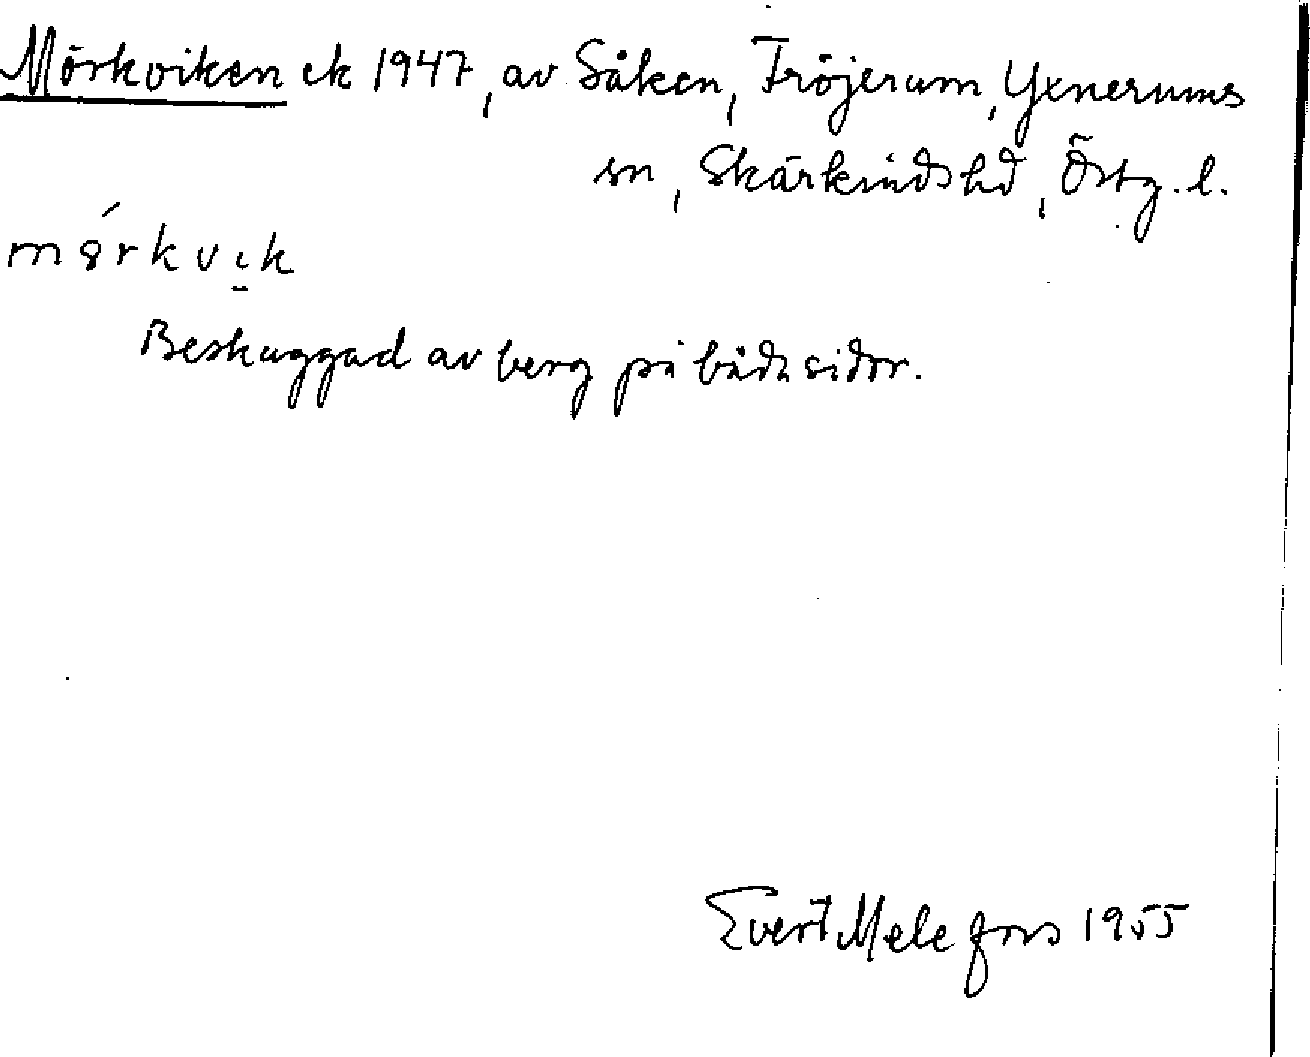 Mörkviken ek 1947, av Såken, Fröjerum, Yxnerums
sn, Skärkinds hd, Östg. l.
Beskuggad av berg på båda sidor.
Evert Melefors 1955